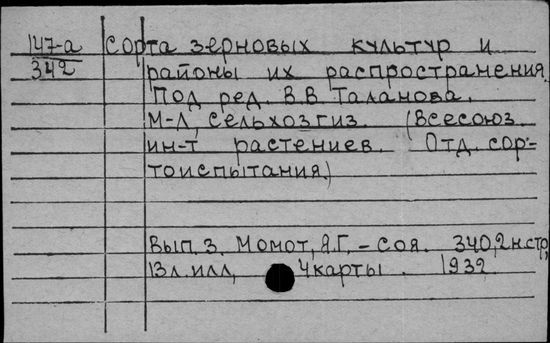 147-а Сорта зерновых культур и
342 районы их распространения.
Под ред. В.В Таланова.
М-Л, Сельхозгиз. (Всесоюз.
ин-т растениев. Отд. сор-
тоиспытания)
Вып. 3. Момот, Я.Г, - Соя. 340,2 н.стр,
13 л. илл, 4 карты. 1932